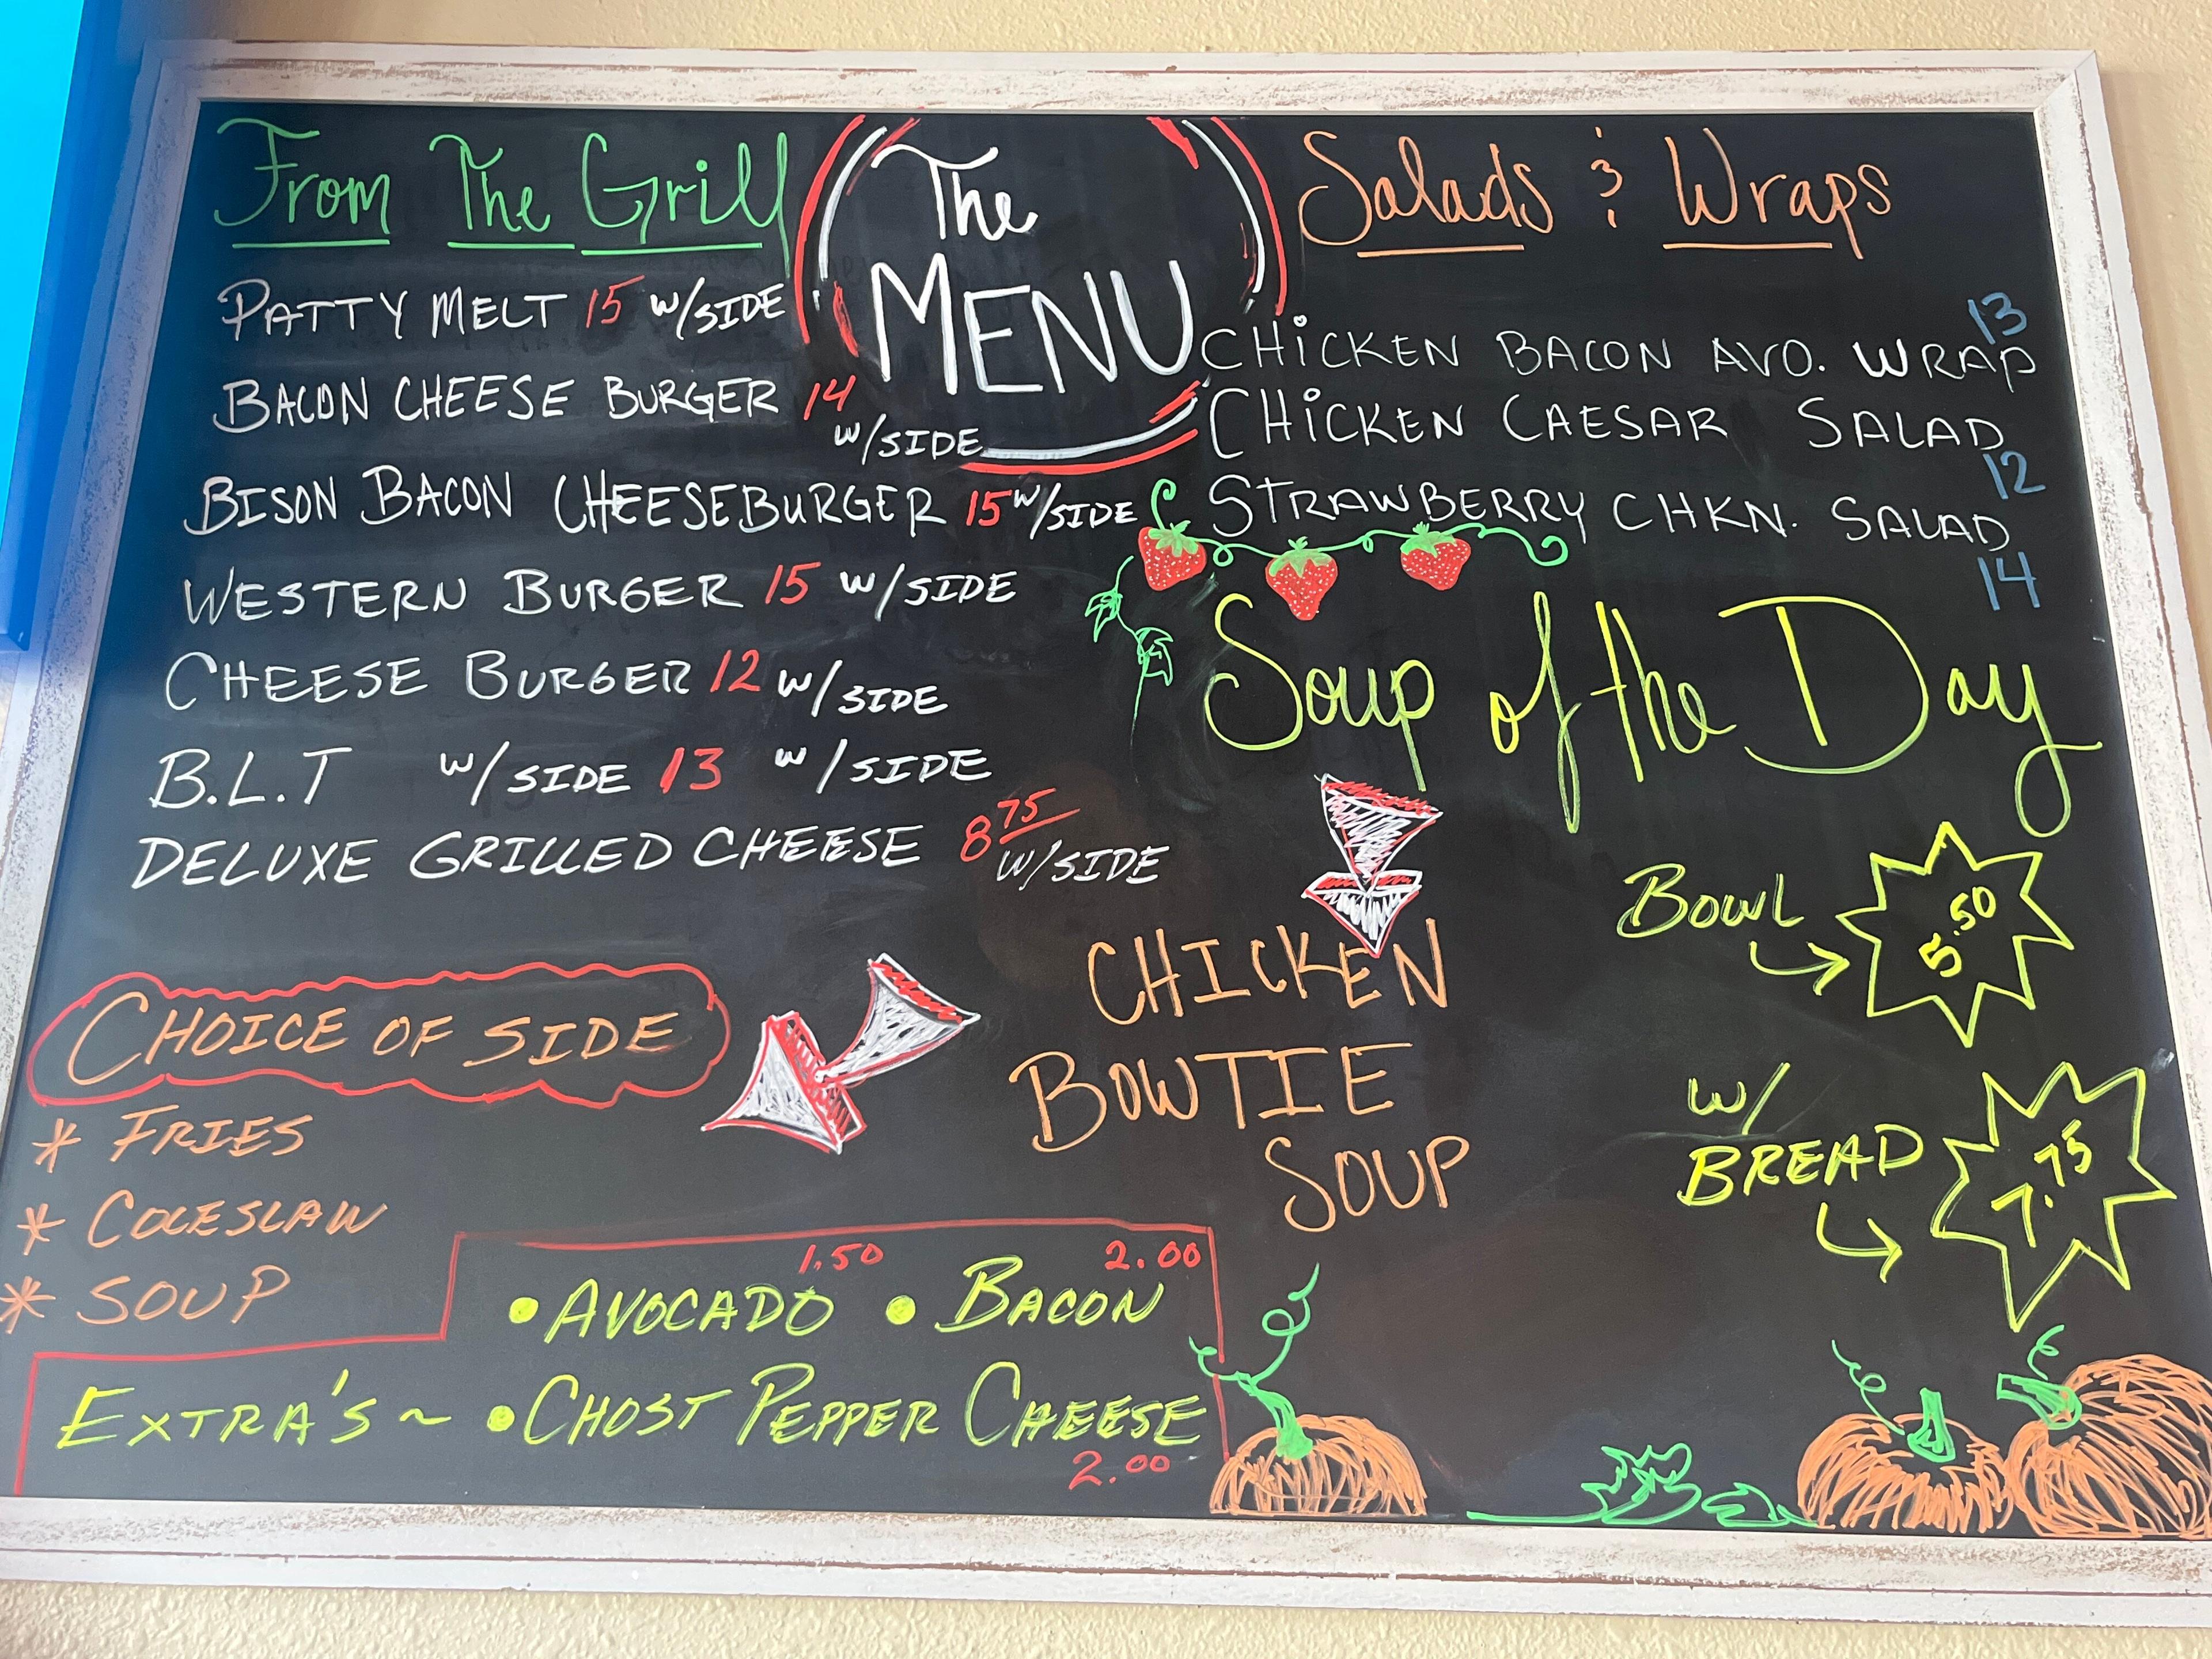 The
MENU
From The Grill
PATTY MELT 15 W/SIDE
BACON CHEESE BURGER 14
W/SIDE
BISON BACON CHEESEBURGER 15 W/SIDE
WESTERN BURGER 15 W/SIDE
CHEESE BURGER 12 W/SIDE
B.L.T W/SIDE 13 W/SIDE
DELUXE GRILLED CHEESE 8 75
W/SIDE
CHOICE OF SIDE
* FRIES
* COLESLAW
* SOUP
1.50 2.00
• AVOCADO • BACON
EXTRA'S ~ • CHOST PEPPER CHEESE
2.00
Salads & Wraps
13
CHiCKEN BACON AVO. WRAP
CHiCKEN CAESAR SALAD
12
STRAWBERRY CHKN. SALAD
14
Soup of the Day
CHICKEN
BOWTIE
SOUP
BOWL
5.50
W/
BREAD
7.75